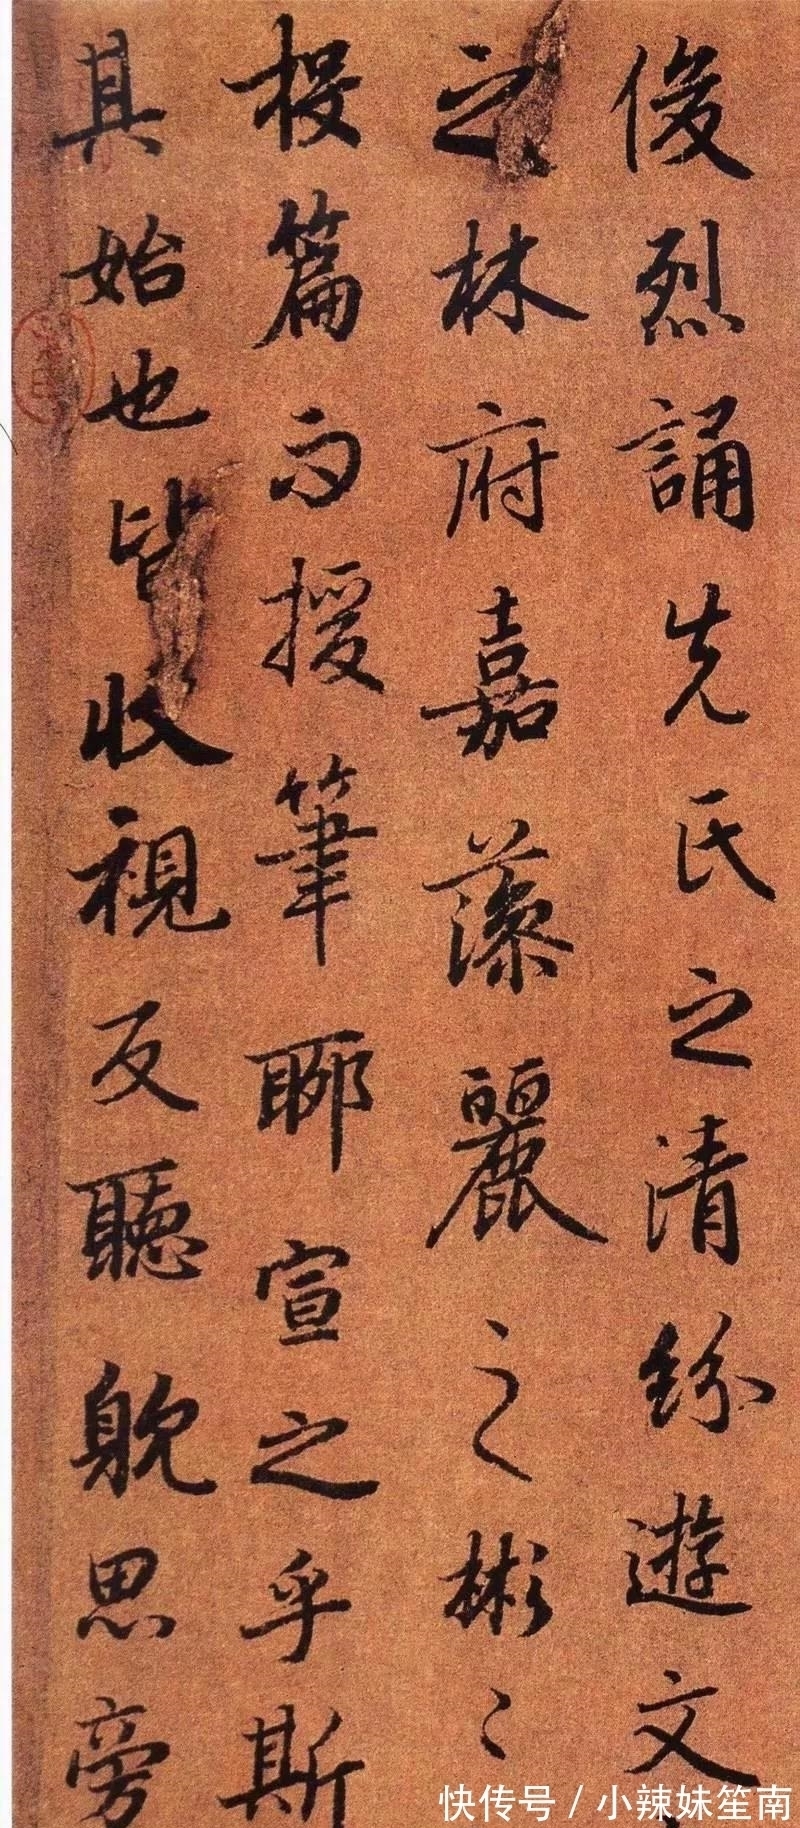 俊烈誦先氏之清紛遊文
之林府嘉藻麗之彬〻
投篇而援筆聊宣之乎斯
其始也皆收視反聽躭思旁
快传号 / 小辣妹笙南